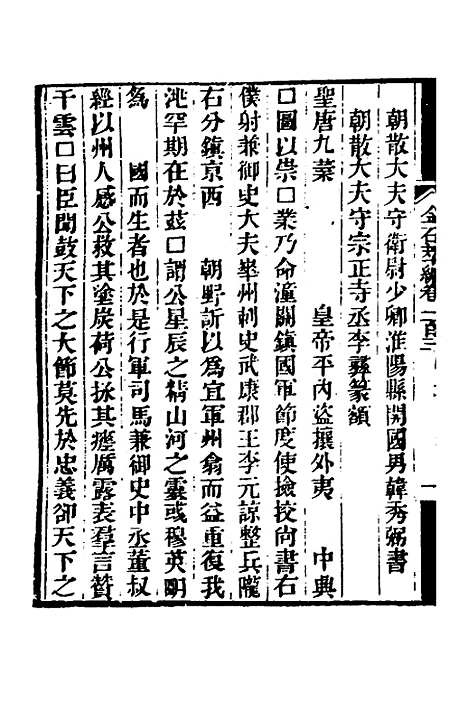 朝散大夫守衛尉少卿淮陽縣開國男韓秀弼書
朝散大夫守宗正寺丞李彝篆額
聖唐九葉　皇帝平內盜攘外夷　中興
□圖以崇□業乃命潼關鎮國軍節度使撿挍尚書右
僕射兼御史大夫華州刺史武康郡王李元諒整兵隴
右分鎮京西　朝野訢以爲宜軍州翕而益重復我
洮罕期在於茲□謂公星辰之精山河之靈或穆英明
爲　國而生者也於是行軍司馬兼御史中丞董叔
經以州人感公救其塗炭荷公拯其瘥厲露表羣言贊
千雲□曰臣聞鼓天下之大節莫先於忠義卻天下之
金石萃編卷一百三
一